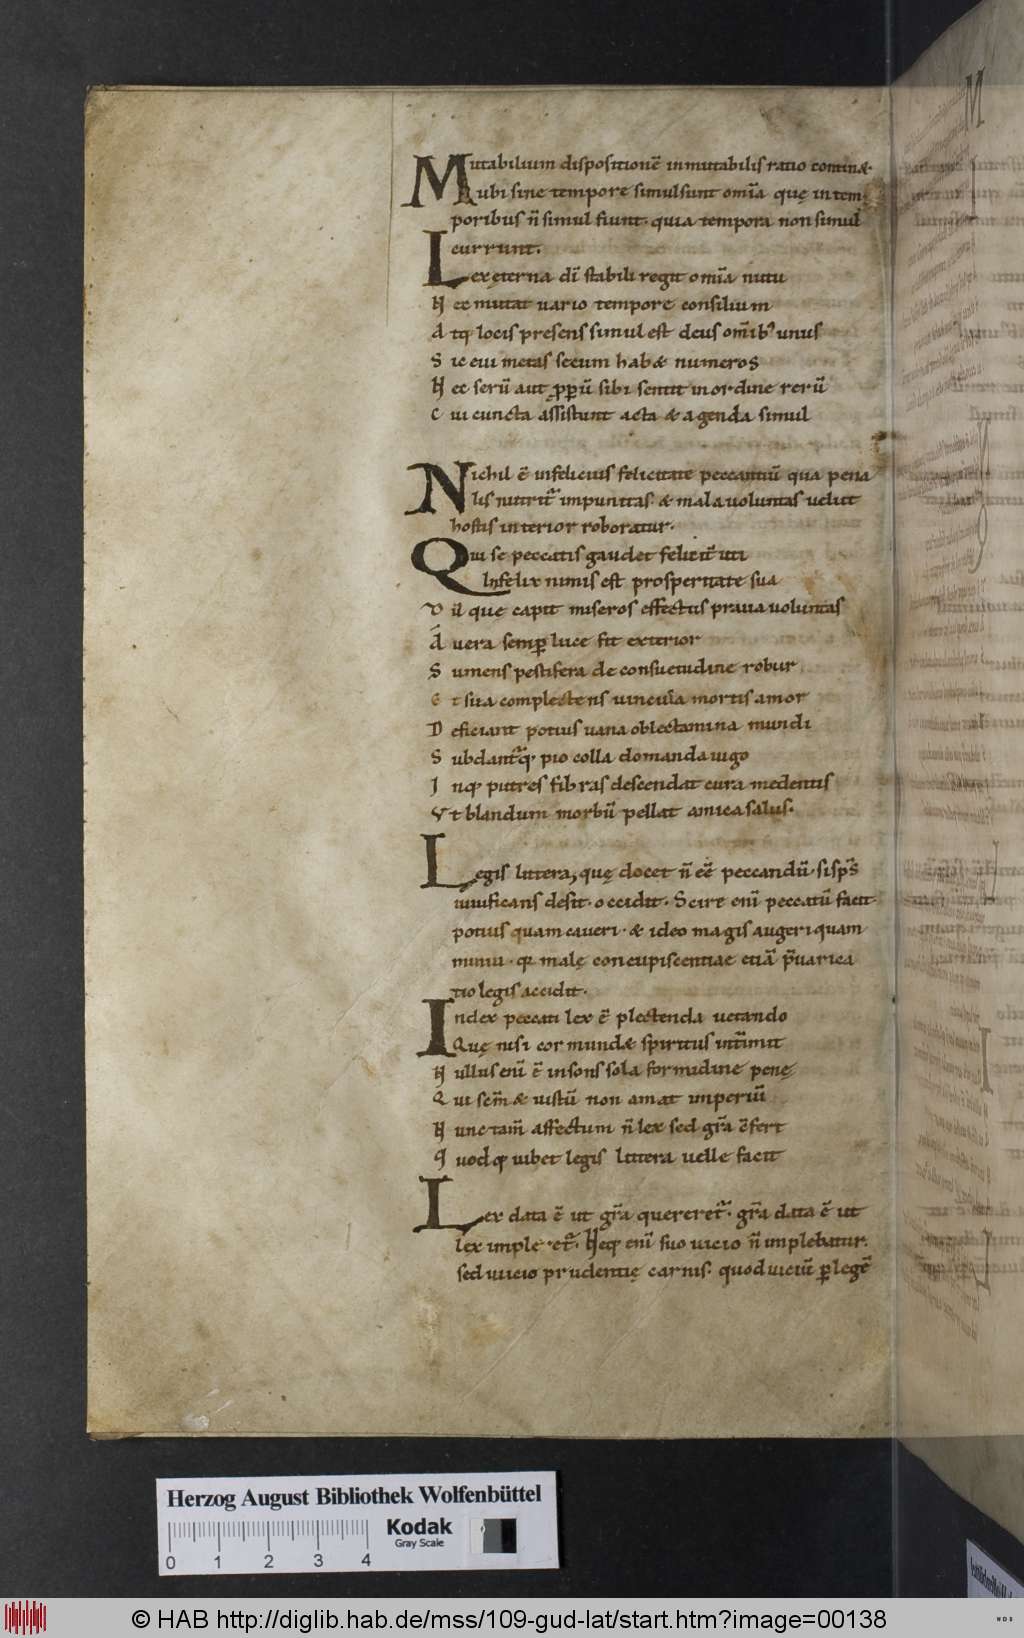 Mutabilium dispositionē inmutabilis ratio contin&
ubi sine tempore simul sunt om̄a quę in tem
poribus n̄ simul fiunt. quia tempora non simul
currunt.
Lex ęterna dī stabili regit om̄a nutu
Nec mutat uario tempore consilium
Atq; locis presens simul est deus omīb; unus
Sic eui metas secum hab& numeros
Nec serū aut p̱perū sibi sentit in ordine rerū
Cui cuncta assistunt acta & agenda simul
Nichil ē infelicius felicitate peccantiū qua pena
lis nutrit̄ impunitas. & mala uoluntas uelut
hostis interior roboratur.
Qui se peccatis gaudet felicit̄ uti
Infelix nimis est prosperitate sua
Vil que capit miseros effectus praua uoluntas
A uera semp̱ luce fit exterior
Sumens pestifera de consuetudine robur
Et sua complectens uincula mortis amor
Deficiant potius uana oblectamina mundi
Subdant̄q; pio colla domanda iugo
Inq; putres fibras descendat cura medentis
Vt blandum morbū pellat amica salus.
Legis littera, quę docet n̄ eē peccandū. si sp̄s
uiuificans desit. occidit. Scire enī peccatū facit.
potius quam caueri. & ideo magis augeri quam
minui. q; malę concupiscentiae etiā p̄uarica
tio legis accidit.
Index peccati lex ē plectenda uetando
Quę nisi cor mund& spiritus int̄imit
Nullus enī ē insons sola formidine penę
Qui sc̄m & iustū non amat imperiū
Nunc tam̄ affectum n̄ lex sed gr̄a c̄fert
Quod q; iubet legis littera uelle facit
Lex data ē ut gr̄a quereret̄. gr̄a data ē ut
lex impleret̄. Neq; enī suo uicio n̄ implebatur.
sed uicio prudentię carnis. quod uiciū p̱ legē
Herzog August Bibliothek Wolfenbüttel
0 1 2 3 4
Kodak
Gray Scale
© HAB http://diglib.hab.de/mss/109-gud-lat/start.htm?image=00138